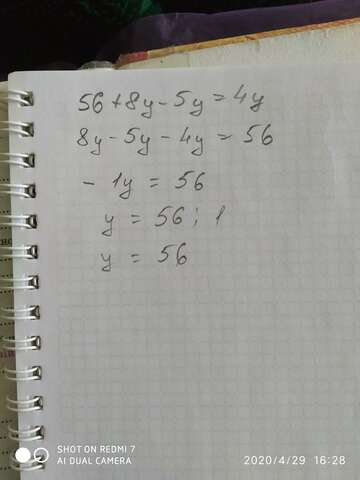 56 + 8y - 5y = 4y
8y - 5y - 4y = 56
- 1y = 56
y = 56 : 1
y = 56
SHOT ON REDMI 7
AI DUAL CAMERA
2020/4/29 16:28